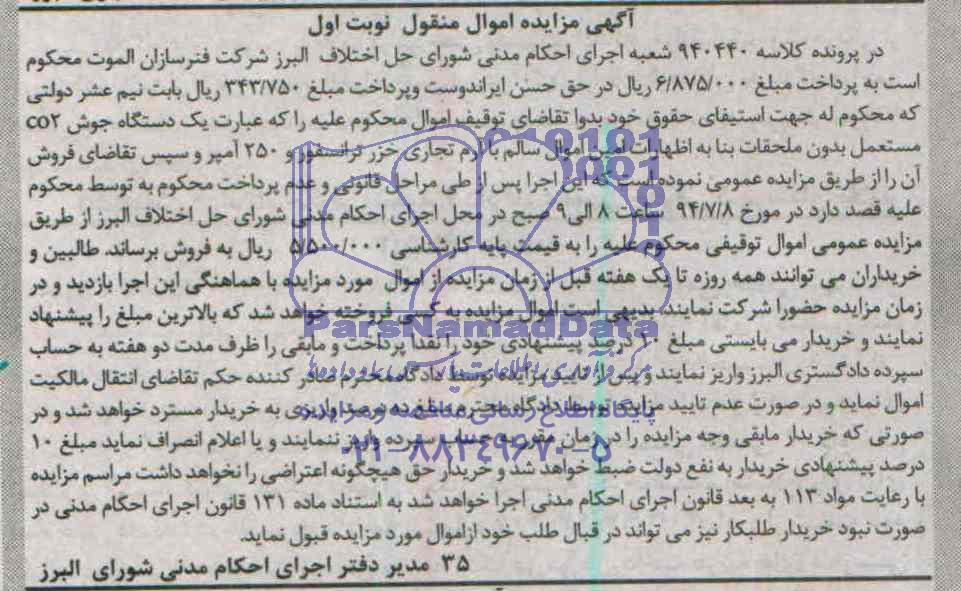 آگهی مزایده اموال منقول نوبت اول
در پرونده کلاسه ۹۴۰۴۴۰ شعبه اجرای احکام مدنی شورای حل اختلاف البرز شرکت فنرسازان الموت محکوم
است به پرداخت مبلغ ۶/۸۷۵/۰۰۰ ریال در حق حسن ایراندوست وپرداخت مبلغ ۳۴۳/۷۵۰ ریال بابت نیم عشر دولتی
که محکوم له جهت استیفای حقوق خود بدوا تقاضای توقیف اموال محکوم علیه را که عبارت یک دستگاه جوش co۲
مستعمل بدون ملحقات بنا به اظهارات امین اموال سالم با آرم تجاری خزر ترانسفور و ۲۵۰ آمپر و سپس تقاضای فروش
آن را از طریق مزایده عمومی نموده است که این اجرا پس از طی مراحل قانونی و عدم پرداخت محکوم به توسط محکوم
علیه قصد دارد در مورخ ۹۴/۷/۸ ساعت ۸ الی۹ صبح در محل اجرای احکام مدنی شورای حل اختلاف البرز از طریق
مزایده عمومی اموال توقیفی محکوم علیه را به قیمت پایه کارشناسی ۵/۵۰۰/۰۰۰ ریال به فروش برساند. طالبین و
خریداران می توانند همه روزه تا یک هفته قبل از زمان مزایده از اموال مورد مزایده با هماهنگی این اجرا بازدید و در
زمان مزایده حضورا شرکت نمایند، بدیهی است اموال مزایده به کسی فروخته خواهد شد که بالاترین مبلغ را پیشنهاد
نمایند و خریدار می بایستی مبلغ ۱۰ درصد پیشنهادی خود را نقدا پرداخت و مابقی را ظرف مدت دو هفته به حساب
سپرده دادگستری البرز واریز نمایند و پس از تایید مزایده توسط دادگاه محترم صادر کننده حکم تقاضای انتقال مالکیت
اموال نماید و در صورت عدم تایید مزایده توسط دادگاه محترم مبلغ ده درصد واریزی به خریدار مسترد خواهد شد و در
صورتی که خریدار مابقی وجه مزایده را در زمان مقرر به حساب سپرده واریز ننمایند و یا اعلام انصراف نماید مبلغ ۱۰
درصد پیشنهادی خریدار به نفع دولت ضبط خواهد شد و خریدار حق هیچگونه اعتراضی را نخواهد داشت مراسم مزایده
با رعایت مواد ۱۱۳ به بعد قانون اجرای احکام مدنی اجرا خواهد شد به استناد ماده ۱۳۱ قانون اجرای احکام مدنی در
صورت نبود خریدار طلبکار نیز می تواند در قبال طلب خود ازاموال مورد مزایده قبول نماید.
۳۵ مدیر دفتر اجرای احکام مدنی شورای البرز
ParsNamadData
پایگاه اطلاع رسانی مناقصه و مزایده
۰۲۱-۸۸۳۴۹۶۷۰-۵